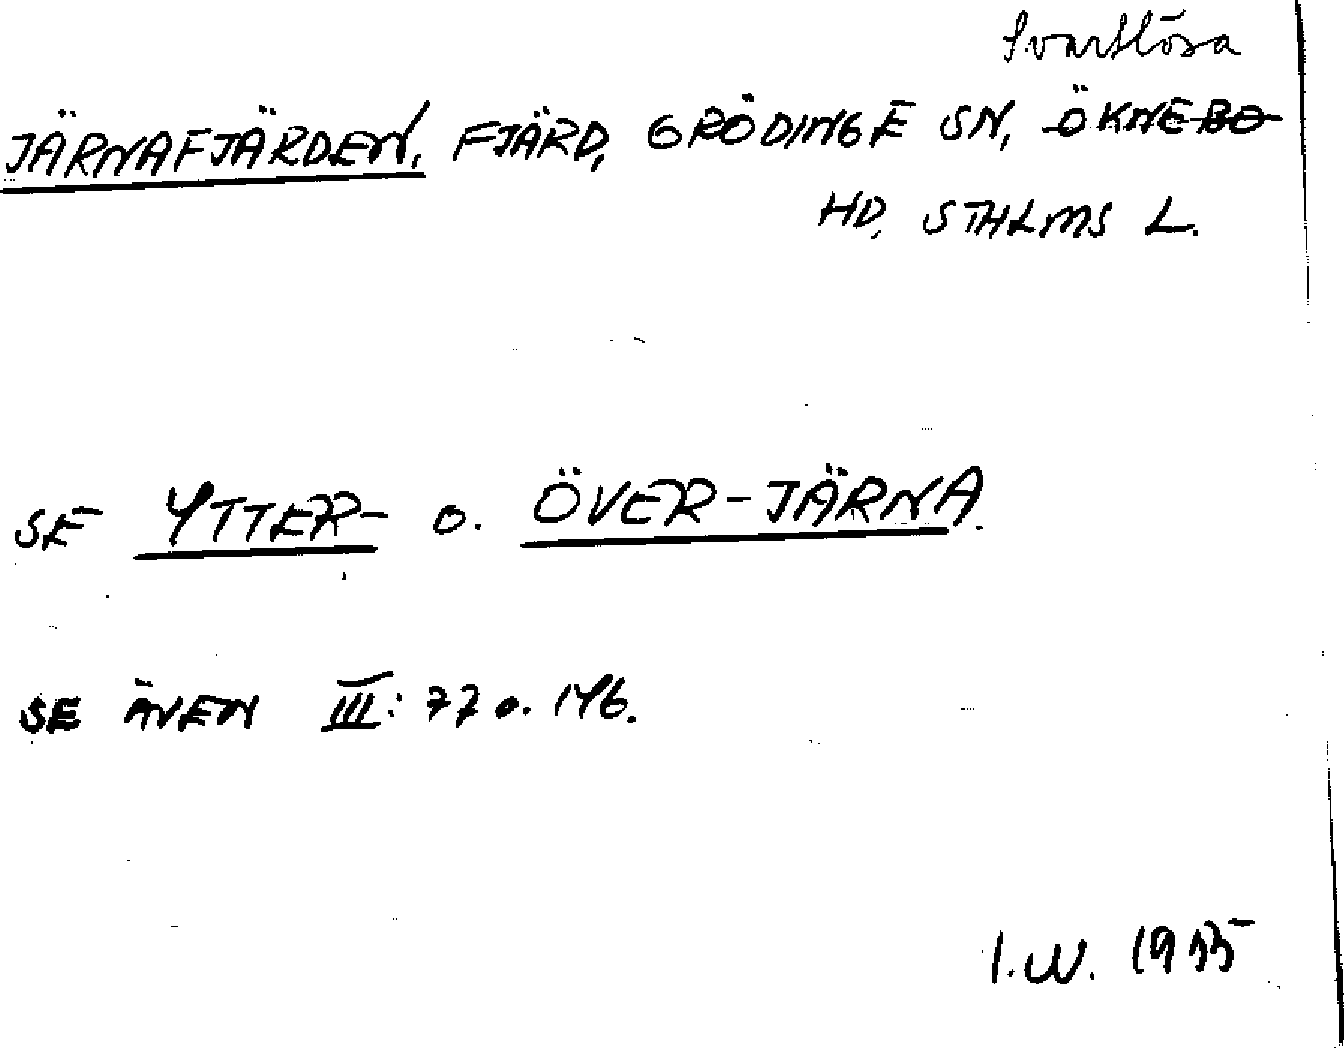 Svartlösa
JÄRNAFJÄRDEN, FJÄRD, GRÖDINGE SN, ÖKNEBO
HD, STHLMS L.
SE YTTER- o. ÖVER-JÄRNA.
SE ÄVEN III: 77 o. 146.
I.W. 1955